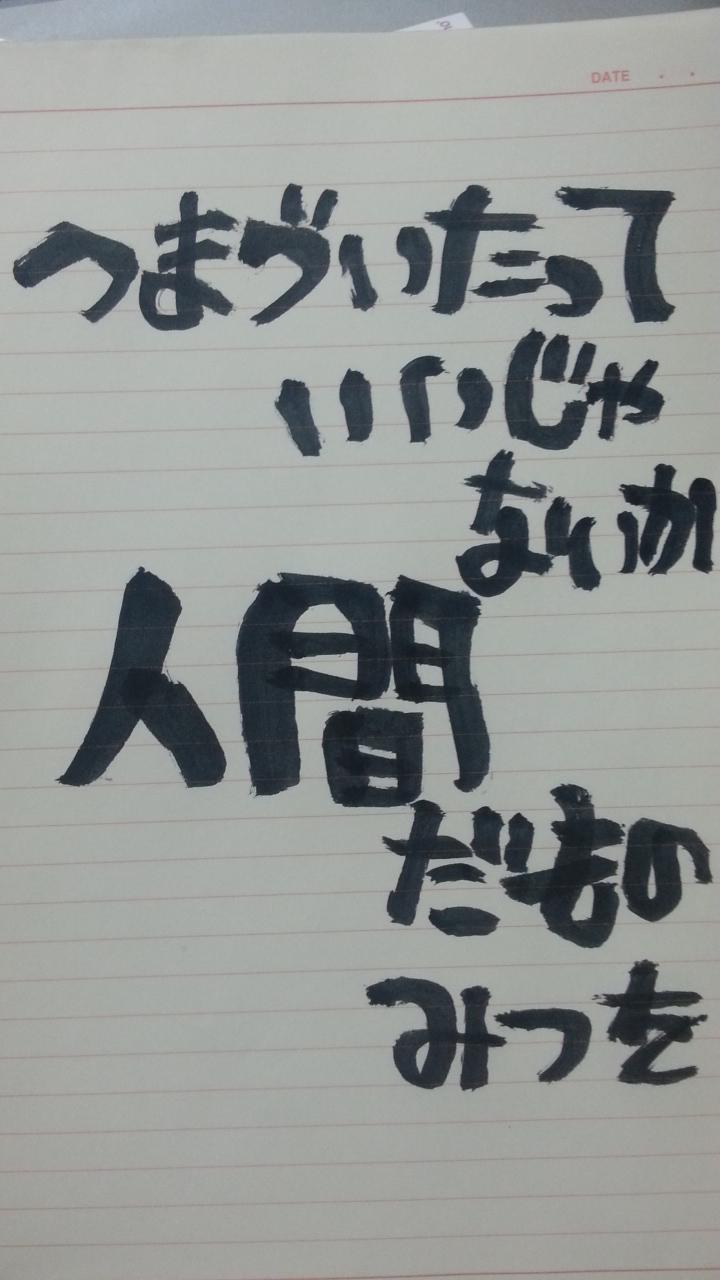 DATE . .
つまづいたって
いいじゃ
ないか
人間
だもの
みつを